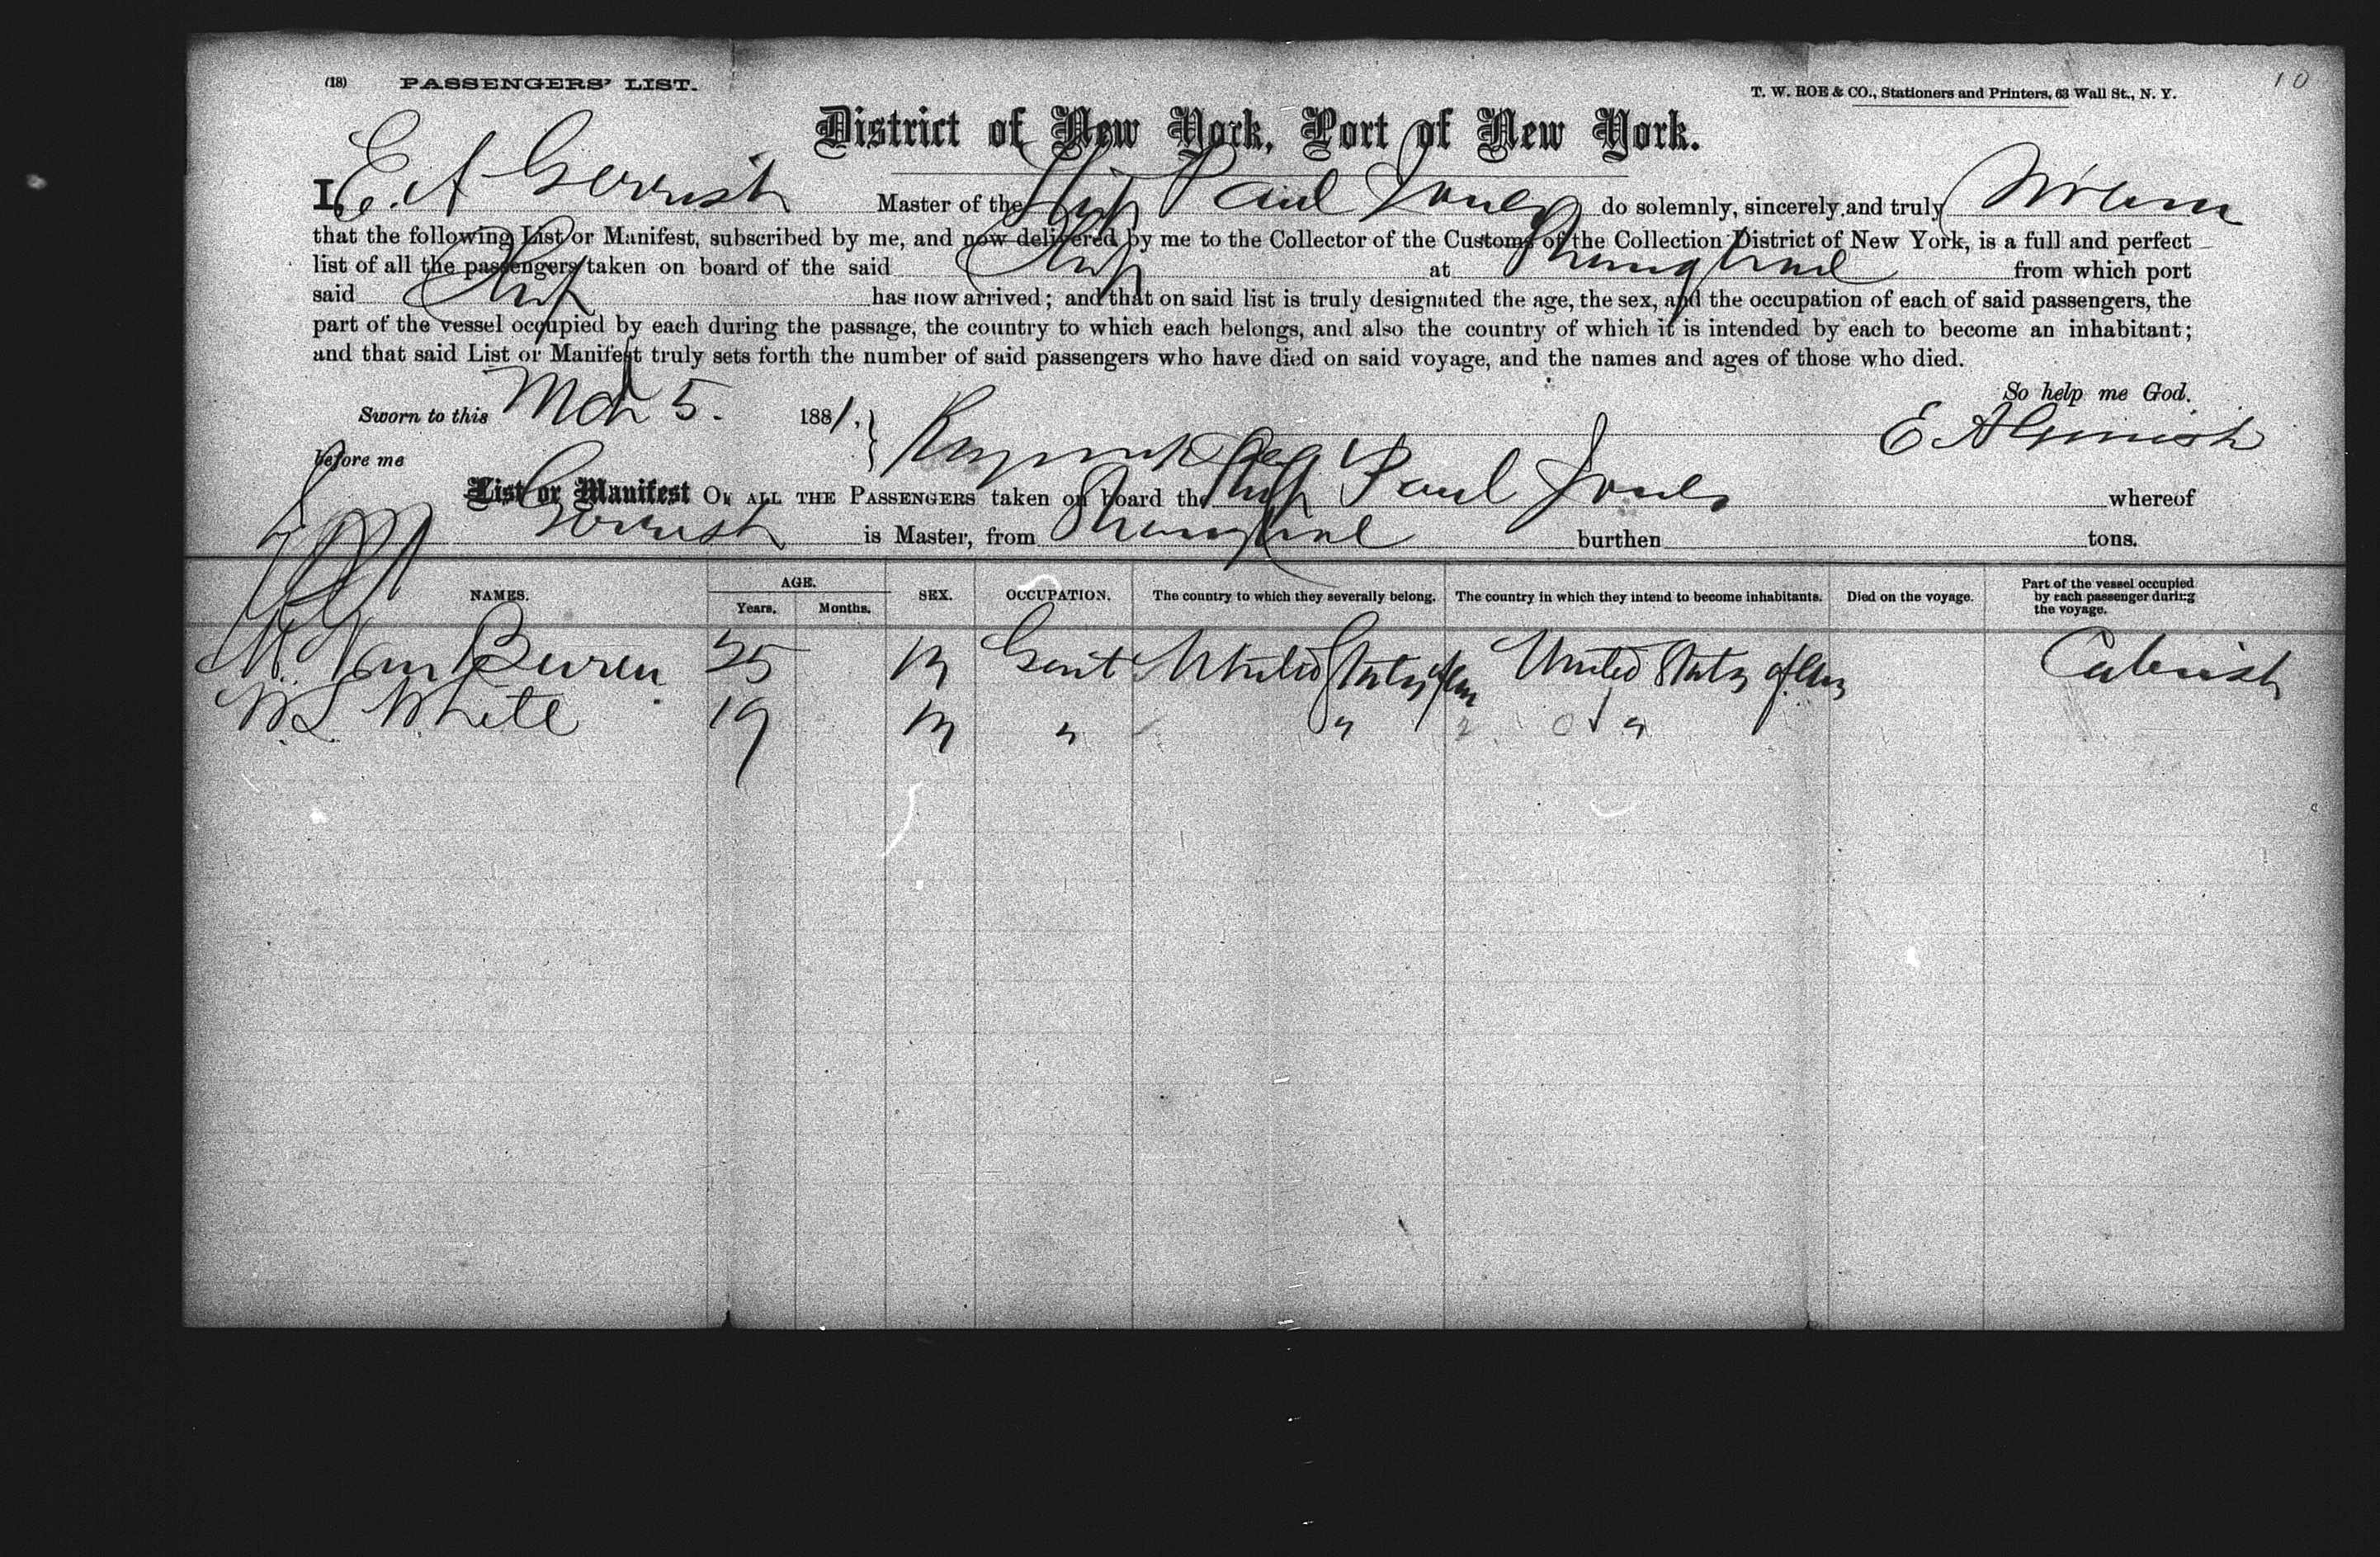 (18) PASSENGERS' LIST.
T. W. ROE & CO., Stationers and Printers, 63 Wall St., N. Y.
10
District of New York, Port of New York.
I, E. A Gerrish Master of the Ship Paul Jones do solemnly, sincerely and truly
that the following List or Manifest, subscribed by me, and now delivered by me to the Collector of the Customs of the Collection District of New York, is a full and perfect
list of all the passengers taken on board of the said Ship at Shanghai from which port
said Ship has now arrived; and that on said list is truly designated the age, the sex, and the occupation of each of said passengers, the
part of the vessel occupied by each during the passage, the country to which each belongs, and also the country of which it is intended by each to become an inhabitant;
and that said List or Manifest truly sets forth the number of said passengers who have died on said voyage, and the names and ages of those who died.
So help me God.
Sworn to this Mch 5. 1881,
E A Gerrish
before me
List or Manifest OF ALL THE PASSENGERS taken on board the Ship Paul Jones whereof
Gerrish is Master, from Shanghai burthen tons.
NAMES. AGE. Years. Months. SEX. OCCUPATION. The country to which they severally belong. The country in which they intend to become inhabitants. Died on the voyage. Part of the vessel occupied by each passenger during the voyage.
M. Van Buren 25 M Gent United States of Am United States of Am
W. L. White 19 M " " "